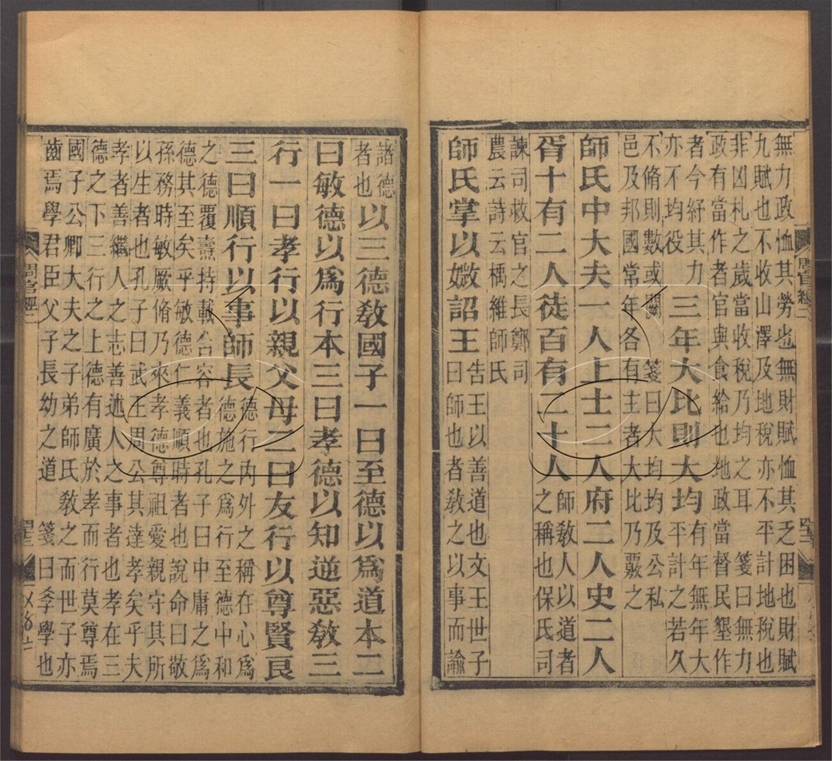 無力政恤其勞也無財賦恤其乏困也財賦
九賦也不收山澤及地稅亦不平計地稅也
非凶札之歲當收稅乃均之耳 箋曰無力
政有當作者官與食給也地政當督民墾作
者今紓其力
亦不均役
三年大比則大均
有年無年大
平計之若久
不脩則數或闕 箋曰大均均及公私
邑及邦國常年各有主者大比乃覈之
師氏中大夫一人上士二人府二人史二人
胥十有二人徒百有二十人
師敎人以道者
之稱也保氏司
諫司救官之長鄭司
農云詩云楀維師氏
師氏掌以媺詔王
告王以善道也文王世子
曰師也者敎之以事而諭
周官經二
諸德
者也
以三德敎國子一曰至德以爲道本二
曰敏德以爲行本三曰孝德以知逆惡敎三
行一曰孝行以親父母二曰友行以尊賢良
三曰順行以事師長
德行內外之稱在心爲
德施之爲行至德中和
之德覆燾持載含容者也孔子曰中庸之爲
德其至矣乎敏德仁義順時者也說命曰敬
孫務時敏厥脩乃來孝德尊祖愛親守其所
以生者也孔子曰武王周公其達孝矣乎夫
孝者善繼人之志善述人之事者也孝在三
德之下三行之上德有廣於孝而行莫尊焉
國子公卿大夫之子弟師氏敎之而世子亦
齒焉學君臣父子長幼之道 箋曰季學也
周官經二